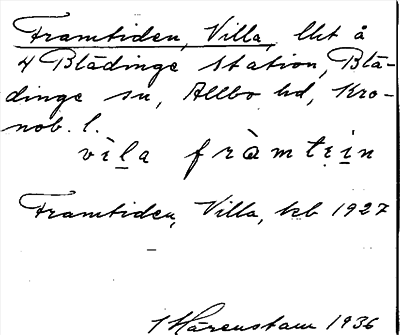 Framtiden, Villa, lht å
4 Blädinge station, Blä-
dinge sn, Allbo hd, Kro-
nob. l.
vìl̠a fràmtẹi̠n
Framtiden, Villa, kb 1927
I Härenstam 1936